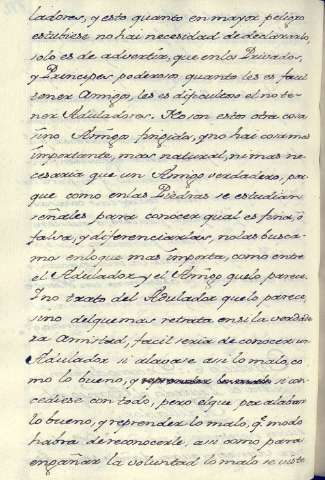 ladores, y esto quanto en mayor peligro
estubiese no hai necesidad de declararlo,
solo es de advertir, que en los Privados,
y Principes poderosos quanto les es facil
tener Amigos, les es dificultoso el no te-
ner Aduladores. No son estos otra cosa
sino Amigos fingidos, y no hai cosa mas
importante, mas natural, ni mas ne-
cesaria que un Amigo verdadero, por
que como en las Piedras se estudian
señales para conocer qual es fina, ó
falsa, y diferenciarlas, no las busca-
mo en lo que mas importa, como entre
el Adulador y el Amigo que lo parece.
Y no trato del Adulador que lo parece,
sino del que mas retrata en si la verdade
ra amistad, facil seria de conocer un
Adulador si alavase asi lo malo, co
mo lo bueno, y reprender lo malo si con
cediese con todo, pero el que por alabar
lo bueno, y reprender lo malo, q.e modo
habra de reconocerle, asi como para
engañar la voluntad lo malo se viste